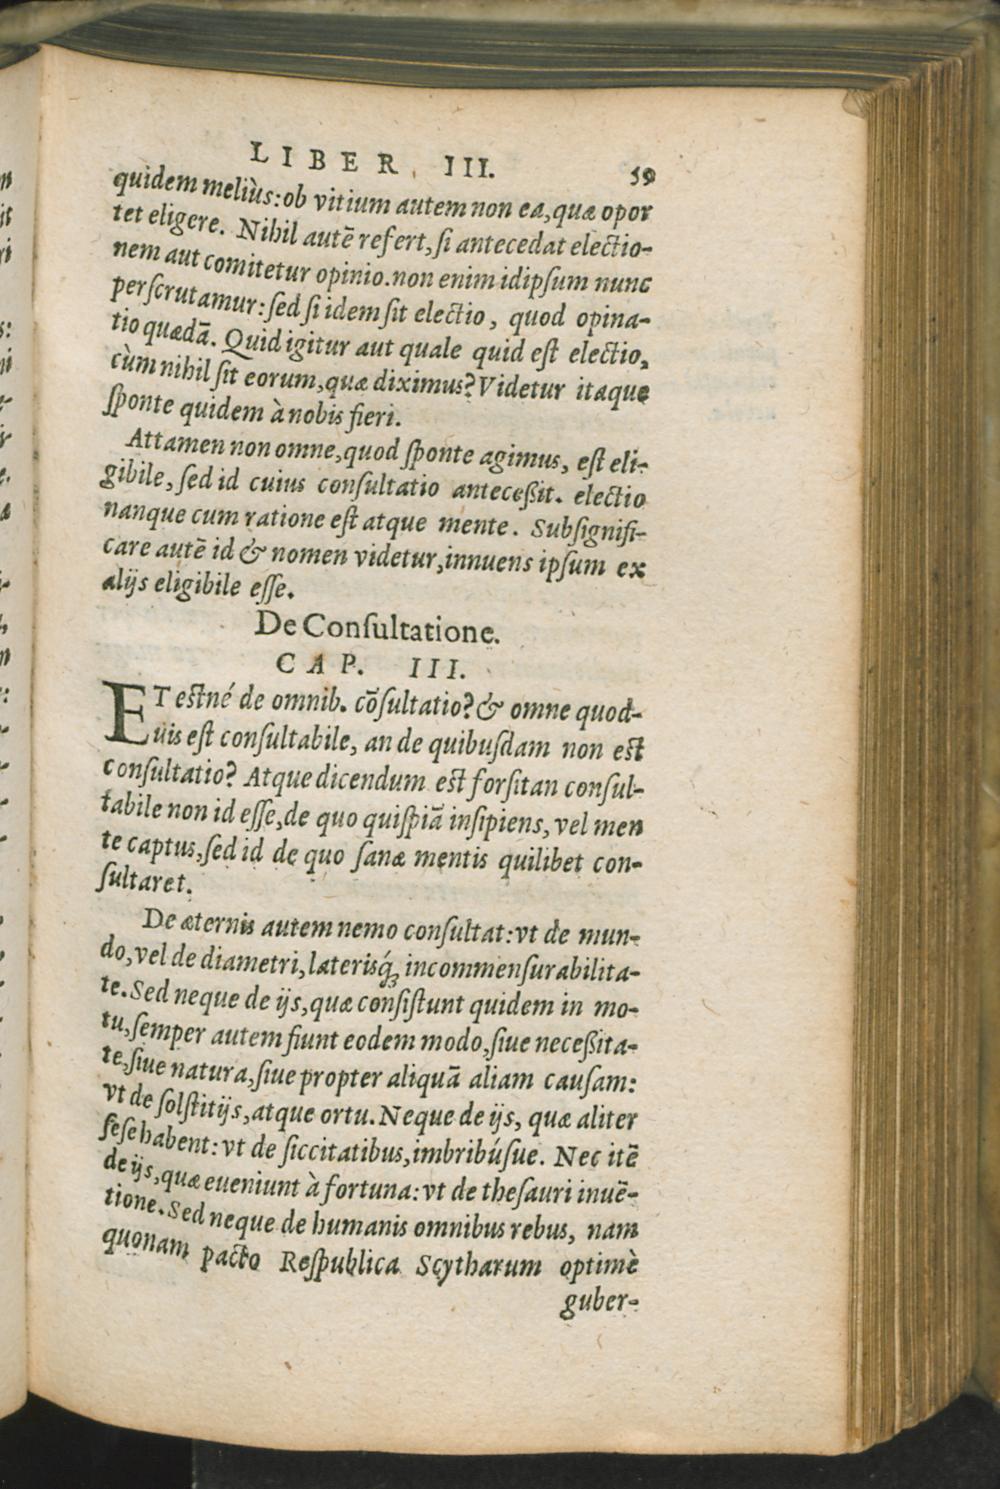 LIBER III. 59
quidem meliùs:ob vitium autem non ea,quæ opor
tet eligere. Nihil autē refert,ſi antecedat electio-
nem aut comitetur opinio.non enim idipſum nunc
perſcrutamur:ſed ſi idem ſit electio, quod opina-
tio quædā. Quid igitur aut quale quid eſt electio,
cùm nihil ſit eorum,quæ diximus?Videtur itaque
ſponte quidem à nobis fieri.
Attamen non omne,quod ſponte agimus, eſt eli-
gibile, ſed id cuius conſultatio anteceßit. electio
nanque cum ratione eſt atque mente. Subſignifi-
care autē id & nomen videtur,innuens ipſum ex
alijs eligibile eſſe.
De Conſultatione.
CAP. III.
ET eſtné de omnib. cōſultatio?& omne quod-
uis eſt conſultabile, an de quibuſdam non eſt
conſultatio? Atque dicendum eſt forſitan conſul-
tabile non id eſſe,de quo quiſpiā inſipiens, vel men
te captus,ſed id de quo ſanæ mentis quilibet con-
ſultaret.
De æternis autem nemo conſultat:vt de mun-
do,vel de diametri,lateriſq́; incommenſurabilita-
te.Sed neque de ijs,quæ conſiſtunt quidem in mo-
tu,ſemper autem fiunt eodem modo,ſiue neceßita-
te,ſiue natura,ſiue propter aliquā aliam cauſam:
vt de ſolſtitijs,atque ortu.Neque de ijs, quæ aliter
ſeſe habent: vt de ſiccitatibus,imbribúſue. Nec itē
de ijs,quæ eueniunt à fortuna:vt de theſauri inuē-
tione.Sed neque de humanis omnibus rebus, nam
quonam pacto Reſpublica Scytharum optimè
guber-